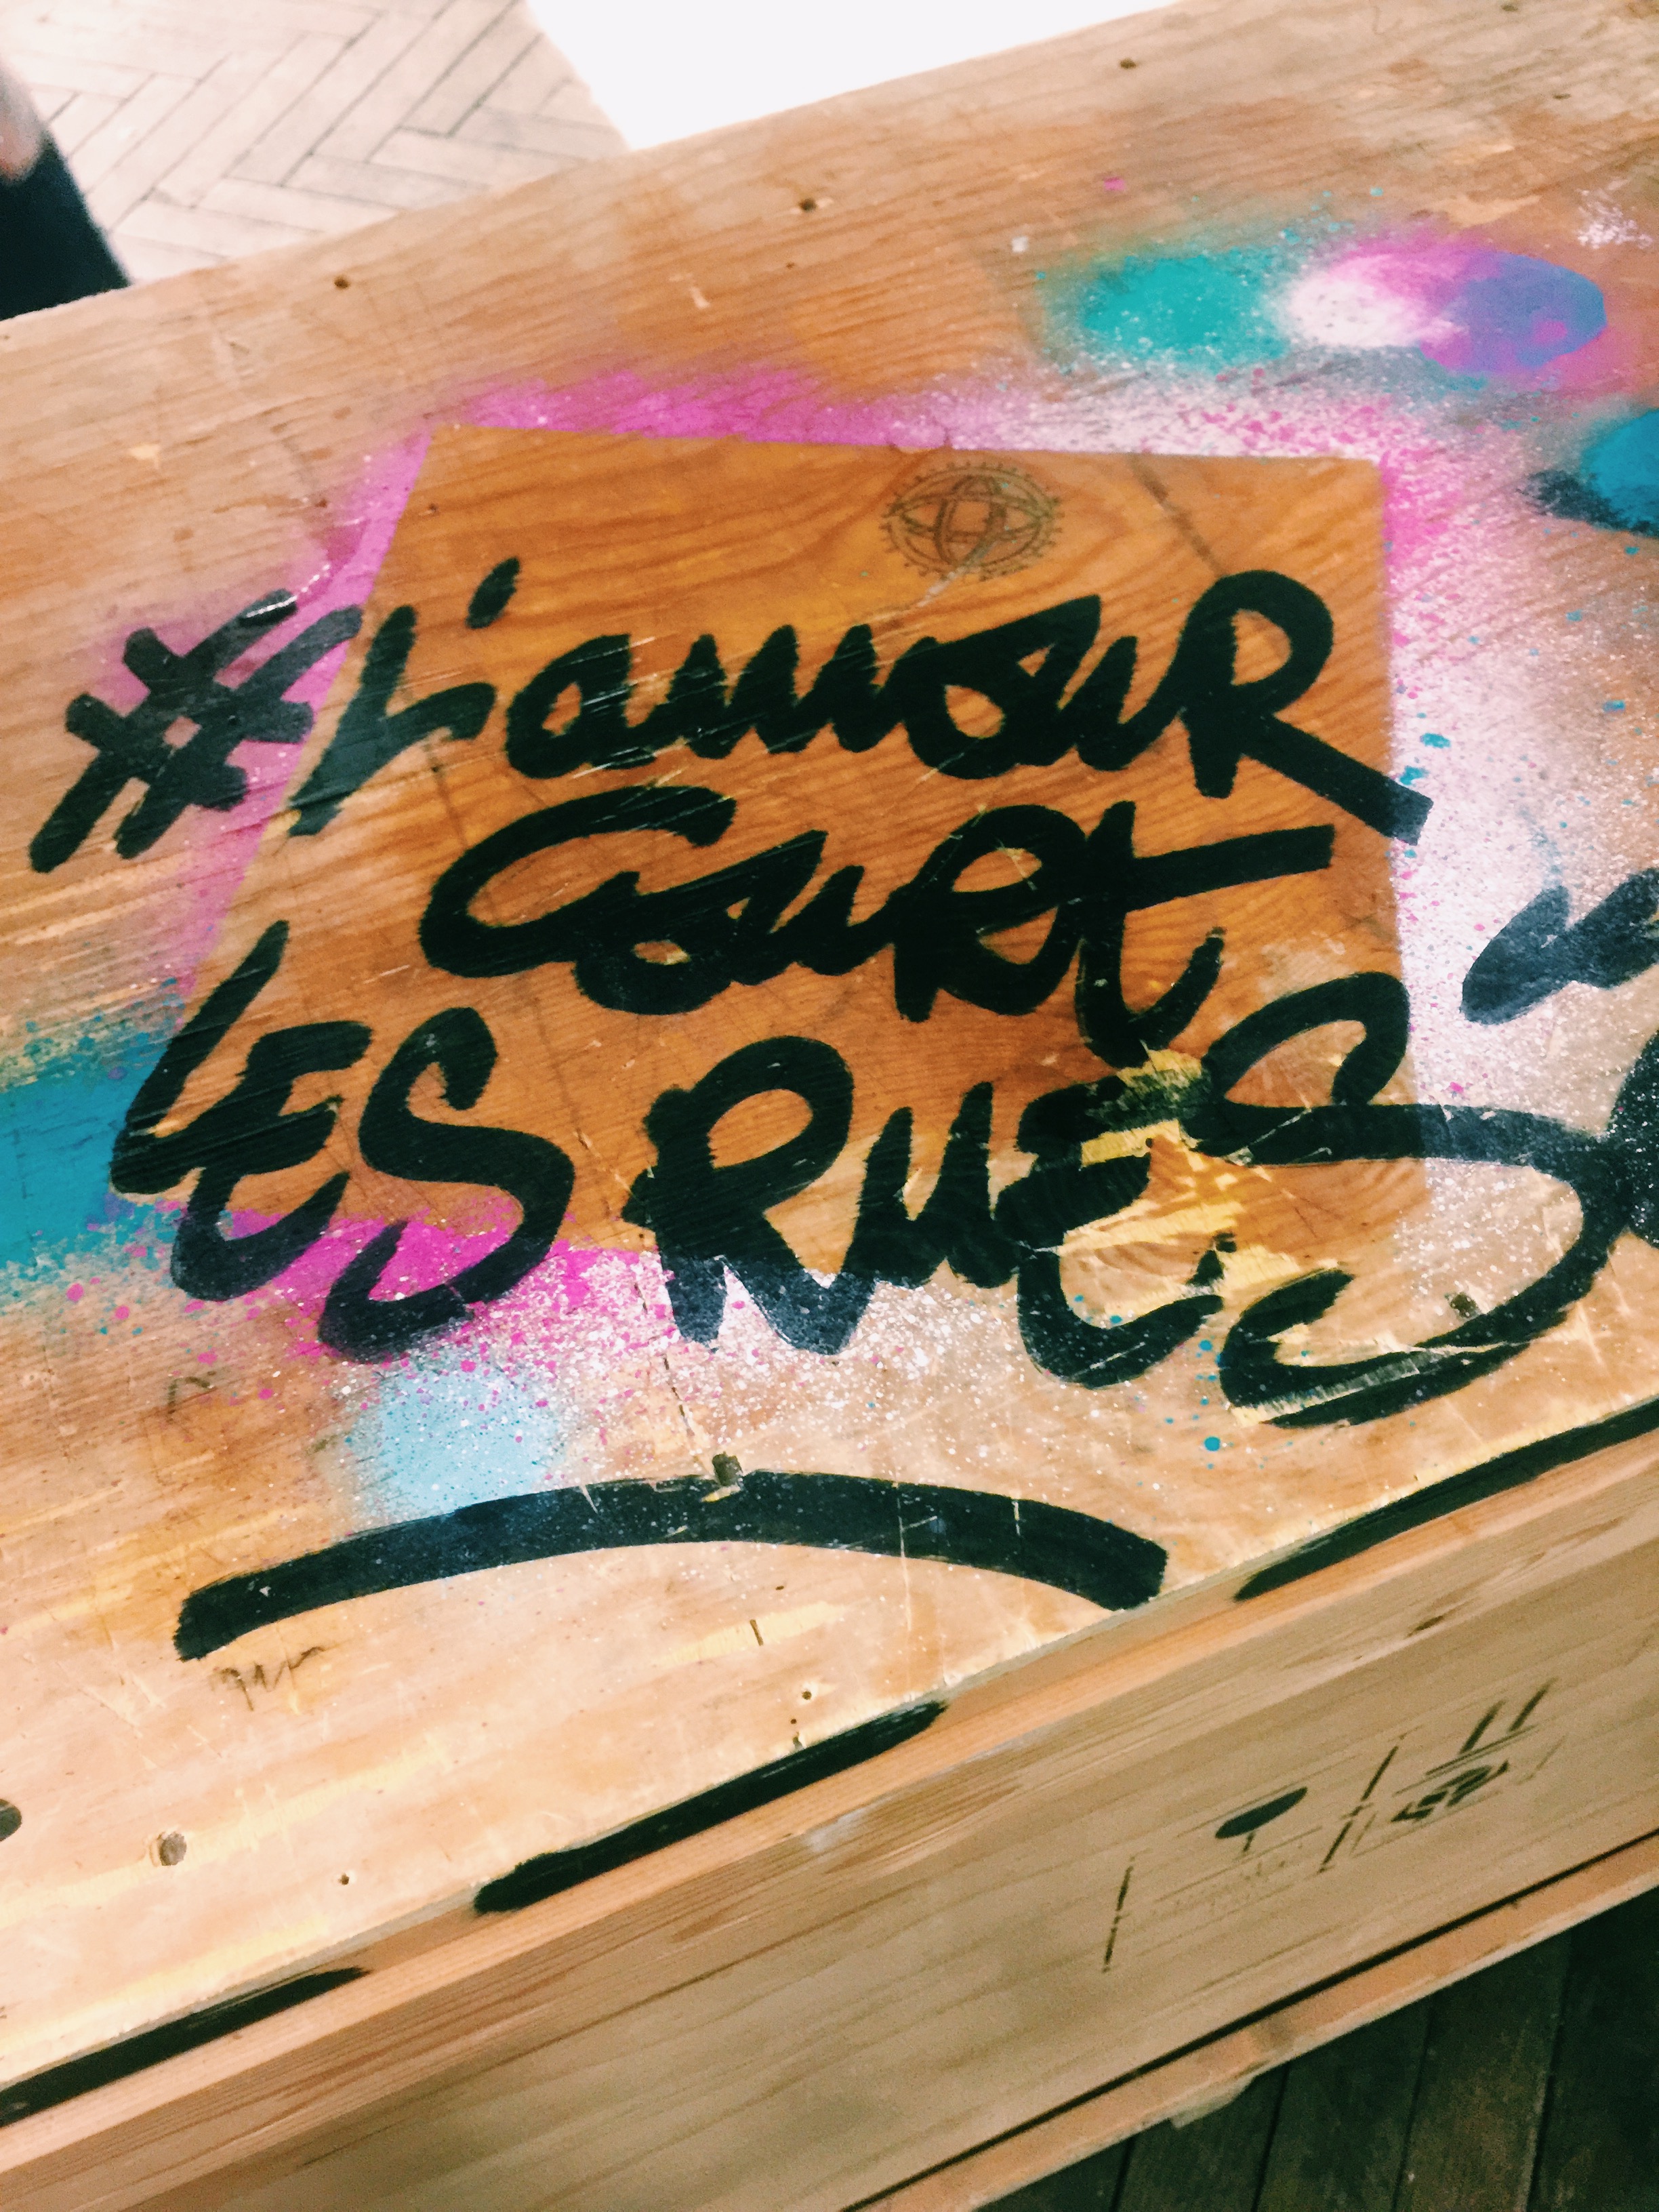 #L'amouR
Court
LES RUES